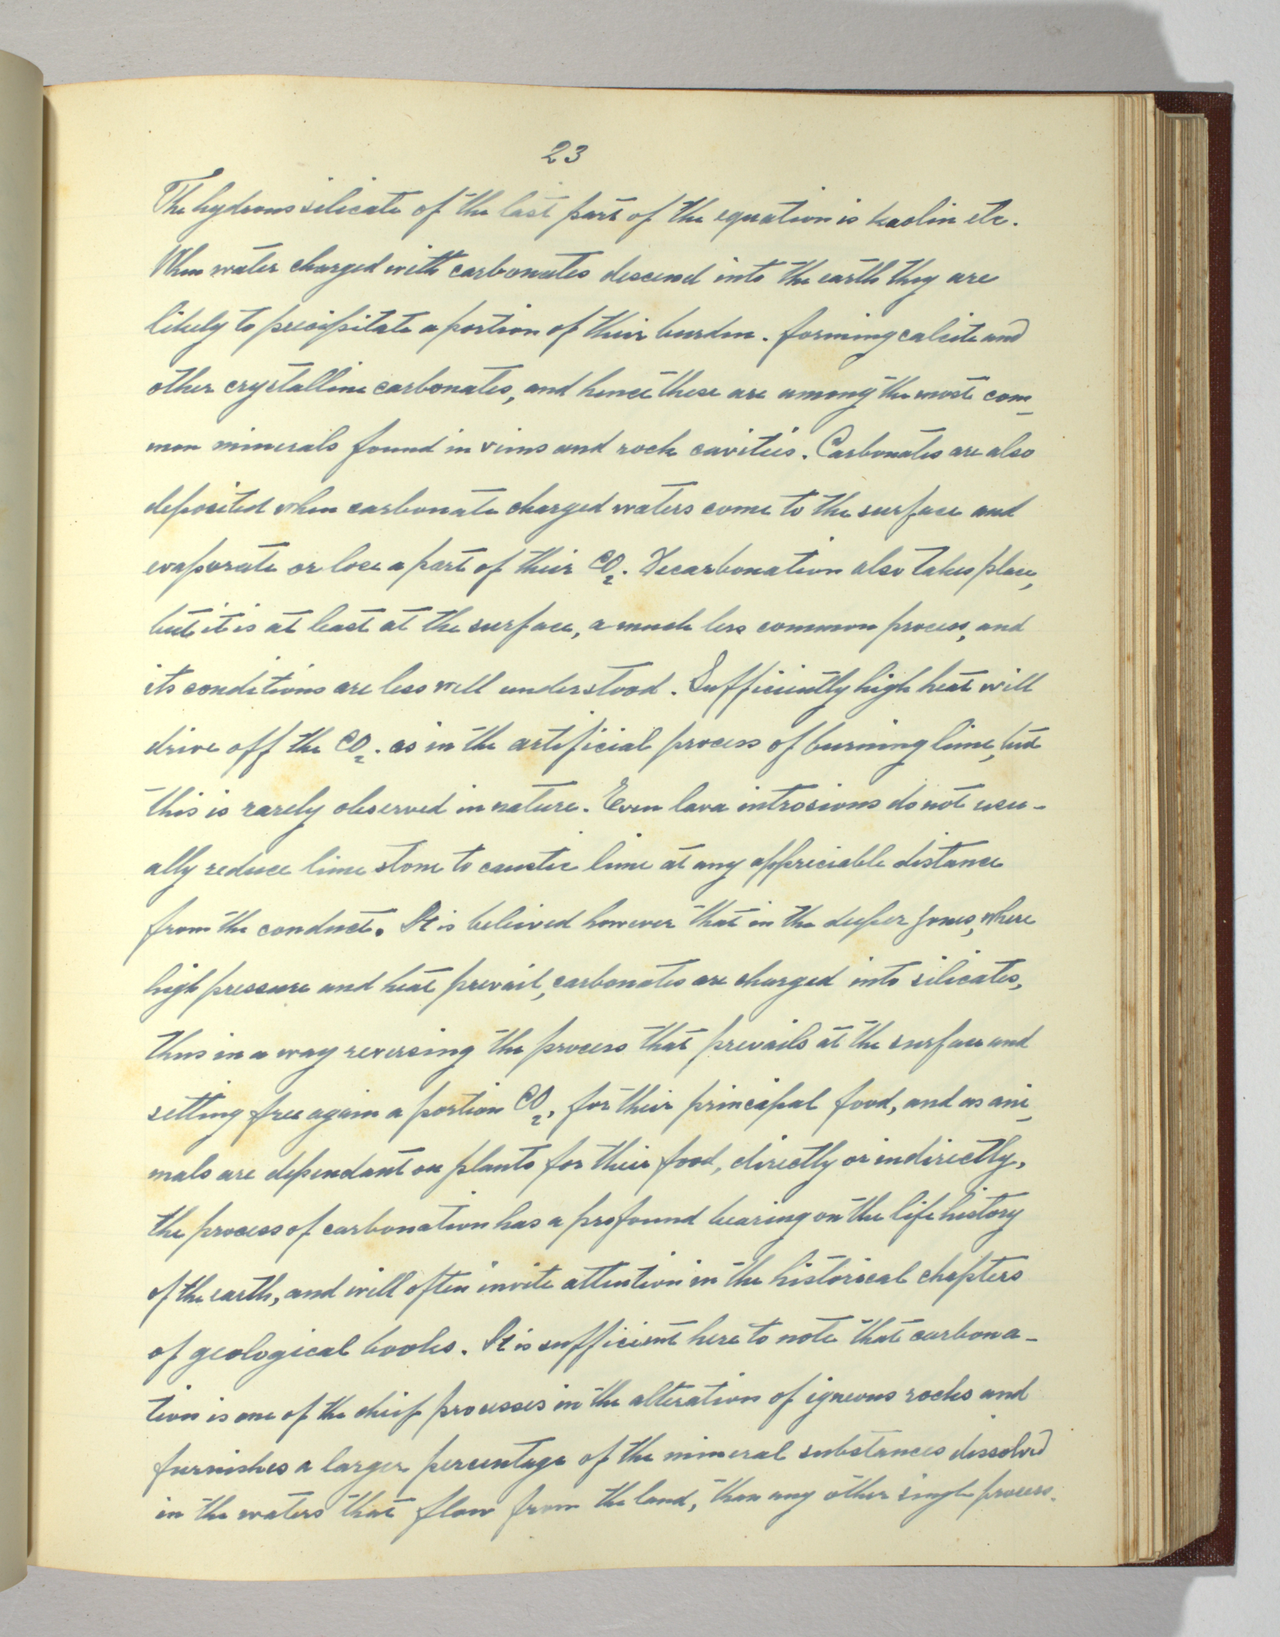 23
The hydrous silicate of the last part of the equation is kaolin etc.
When water charged with carbonates descend into the earth they are
likely to precipitate a portion of their burden. forming calcite and
other crystalline carbonates, and hence these are among the most com-
mon minerals found in viens and rock cavities. Carbonates are also
deposited when carbonate charged waters come to the surface and
evaporate or lose a part of their CO2. Decarbonation also takes place,
but it is at least at the surface, a much less common process, and
its conditions are less well understood. Sufficiently high heat will
drive off the CO2. as in the artificial process of burning lime, but
this is rarely observed in nature. Even lava introsions do not usu-
ally reduce lime stone to caustic lime at any appreciable distance
from the conduct. It is beleived however that in the deeper zones, where
high pressure and heat prevail, carbonates are charged into silicates,
thus in a way reversing the process that prevails at the surface and
setting free again a portion CO2, for their principal food, and as ani-
mals are dependant on plants for their food, directly or indirectly,
the process of carbonation has a profound bearing on the life history
of the earth, and will often invite attention in the historical chapters
of geological books. It is sufficient here to note that carbona-
tion is one of the chief processes in the alteration of igneous rocks and
furnishes a larger percentage of the mineral substances dissolved
in the waters that flow from the land, than any other single process.